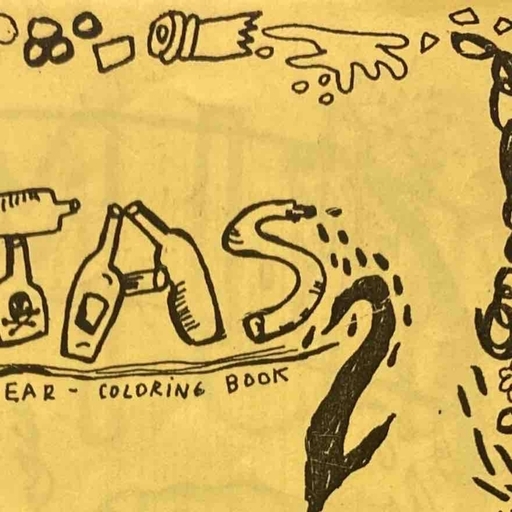 TAS
2
EAR - COLORING BOOK